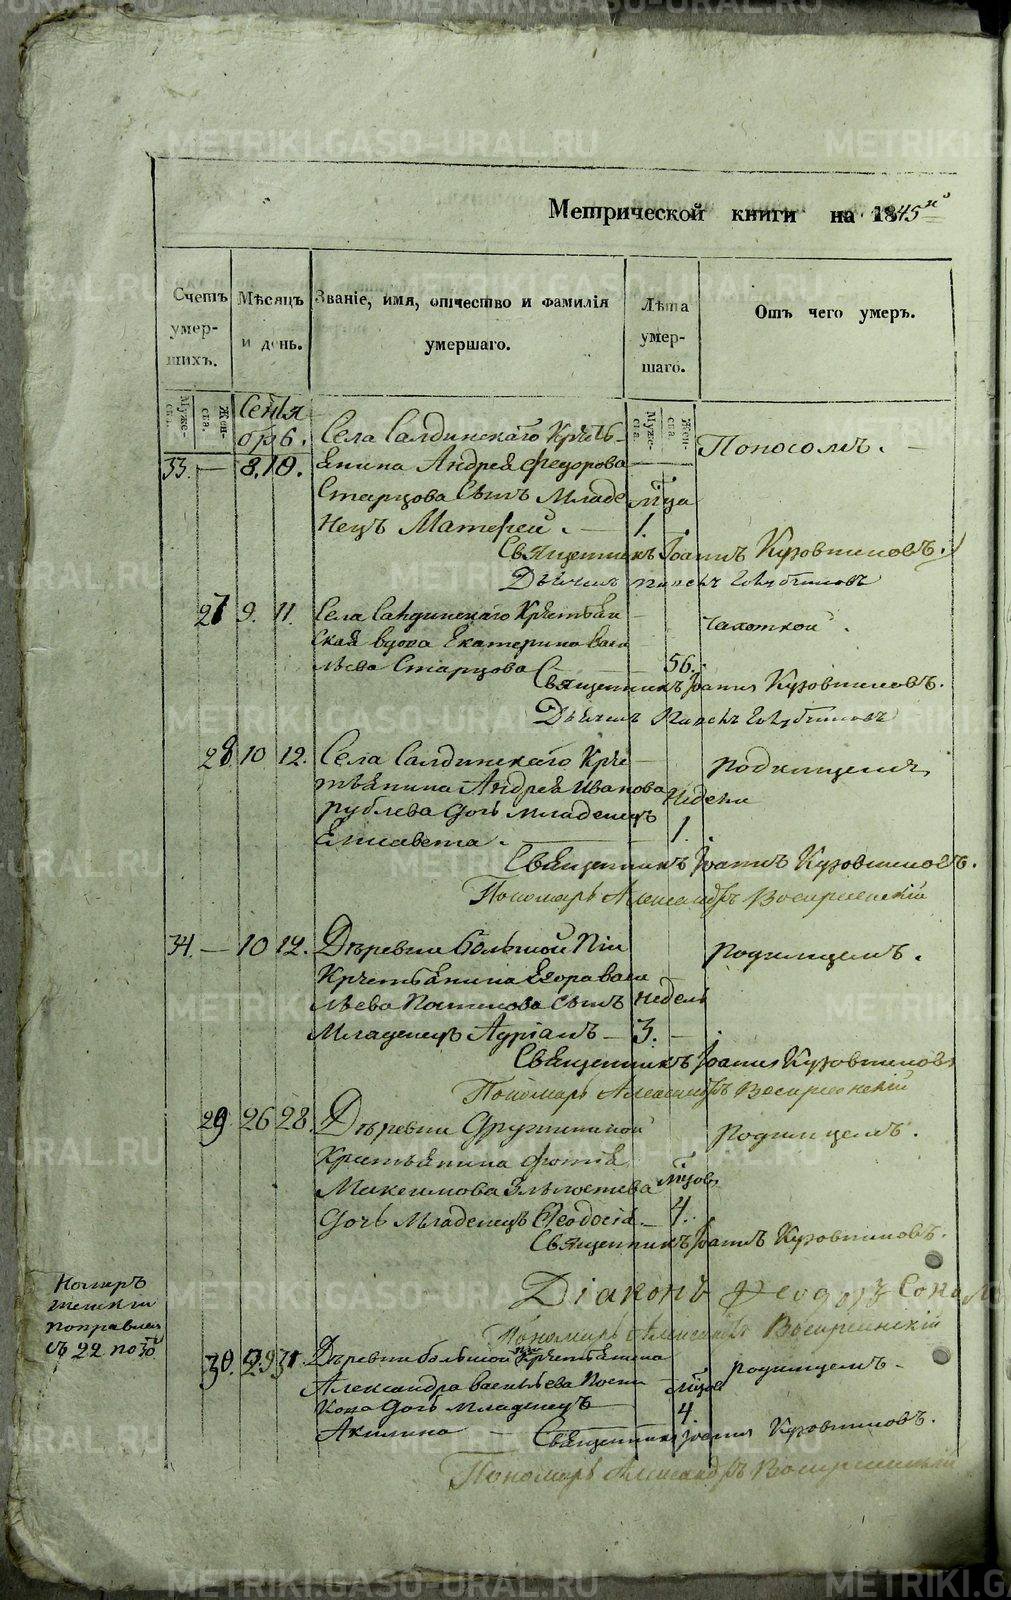 METRIKI.GASO-URAL.RU
Метрической книги на 1845й
Счетъ умер- шихъ.
Мѣсяцъ и день.
Званіе, имя, отчество и фамилія умершаго.
Лѣта умер- шаго.
Отъ чего умеръ.
Муже- ска.
Жен- ска.
Муже- ска.
Жен- ска.
Сентя
бр 6. Села Салдинскаго Кресть Поносомъ.
33. — 8. 10. янина Андрея Федорова
Старцова Сынъ Младе мца
нецъ Матфей. — 1.
Священникъ Іоаннъ Кузовниковъ.
27 9. 11. Села Салдинскаго Крестьян Чахоткой.
ская вдова Екатерина Васи
льева Старцова 56.
Священникъ Іоаннъ Кузовниковъ.
28. 10 12. Села Салдинскаго Кре родимцемъ
стьянина Андрея Иванова Недели
рублева Дочь младенецъ
Елисавета. 1.
Священникъ Іоаннъ Кузовниковъ.
Пономарь Александръ Воскресенскій
34. — 10 12. Деревни большой родимцемъ.
Крестьянина Егора Васи
льева Сынъ недель
Младенецъ Адріанъ — 3.
Священникъ Іоаннъ Кузовниковъ
Пономарь Александръ Воскресенскій
29 26 28. Деревни Дружининой родимцемъ.
Крестьянина Фотія
Максимова мцовъ
Дочь Младенецъ Феодосія. — 4.
Священникъ Іоаннъ Кузовниковъ.
Діаконъ Феодоръ
Пономарь Александръ Воскресенскій
Номеръ
женски
поправлен
съ 22 по 30й
30. 29 31. Деревни большой Крестьянина родимцемъ
Александра Васильева мцов
Дочь младенецъ 4
Акилина — Священникъ Іоаннъ Кузовниковъ.
Пономарь Александръ Воскресенскій